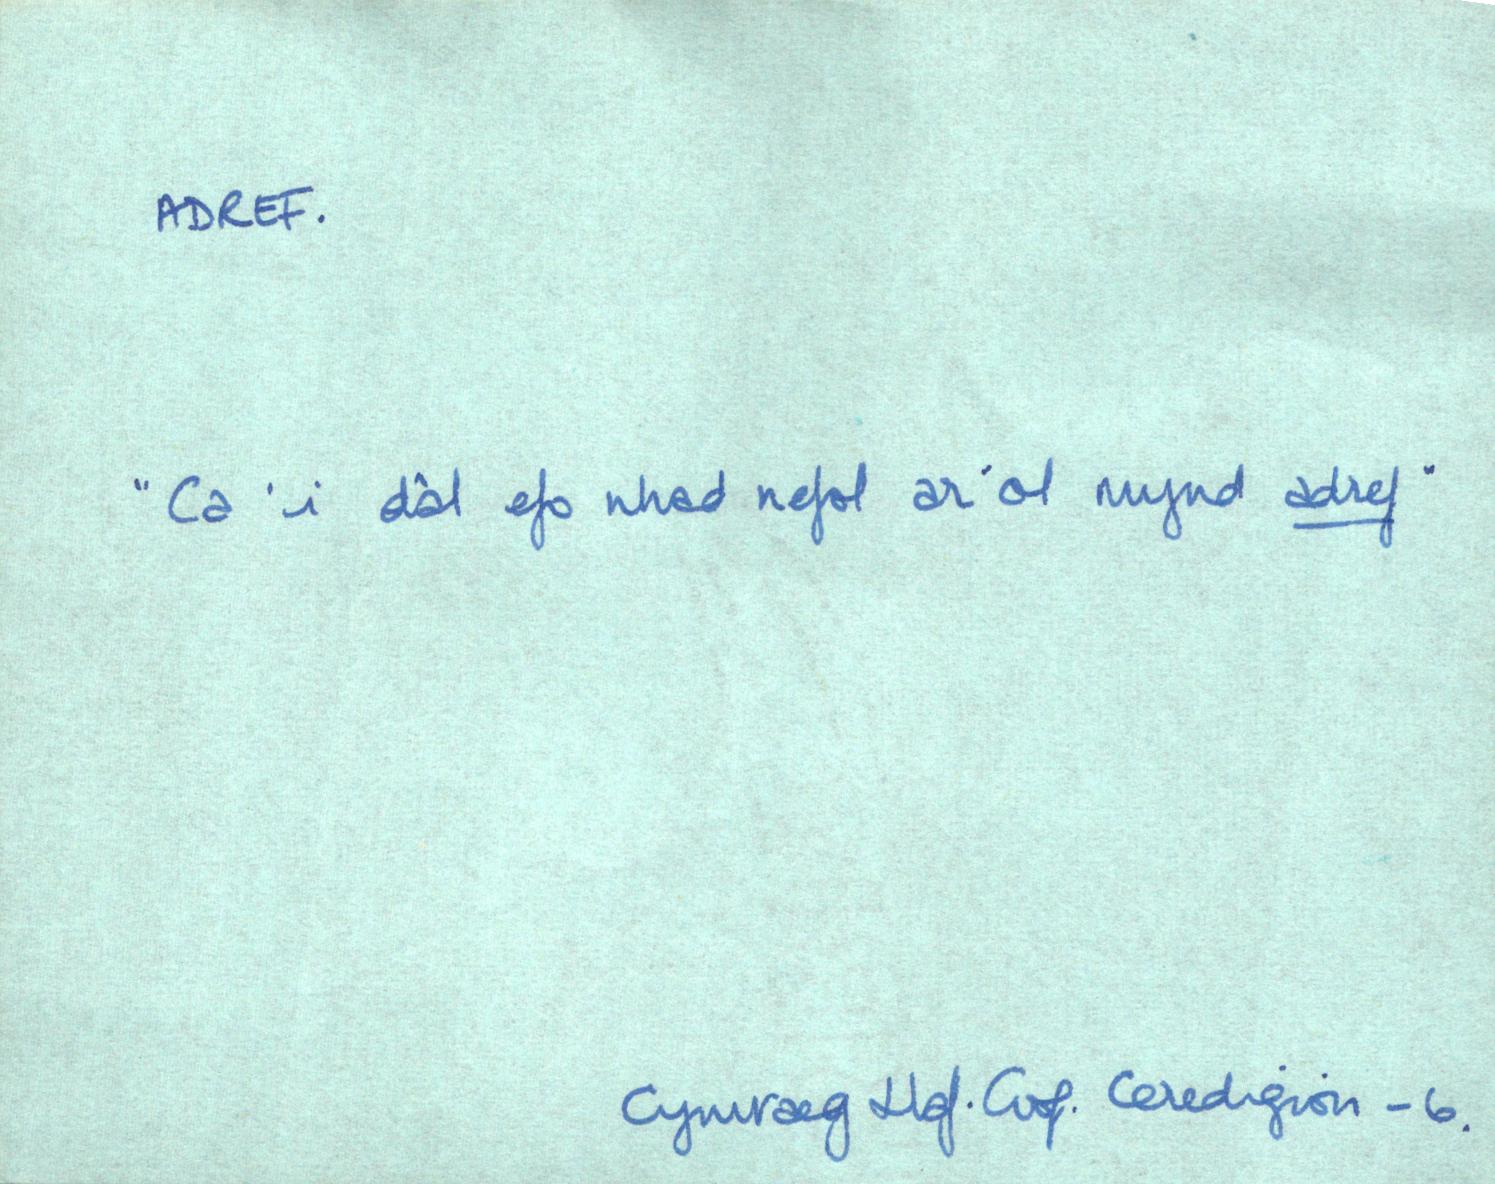 ADREF.
"Ca 'i dâl efo nhad nefol ar 'ol mynd adref"
Cymraeg Llaf. Ceredigion - 6.